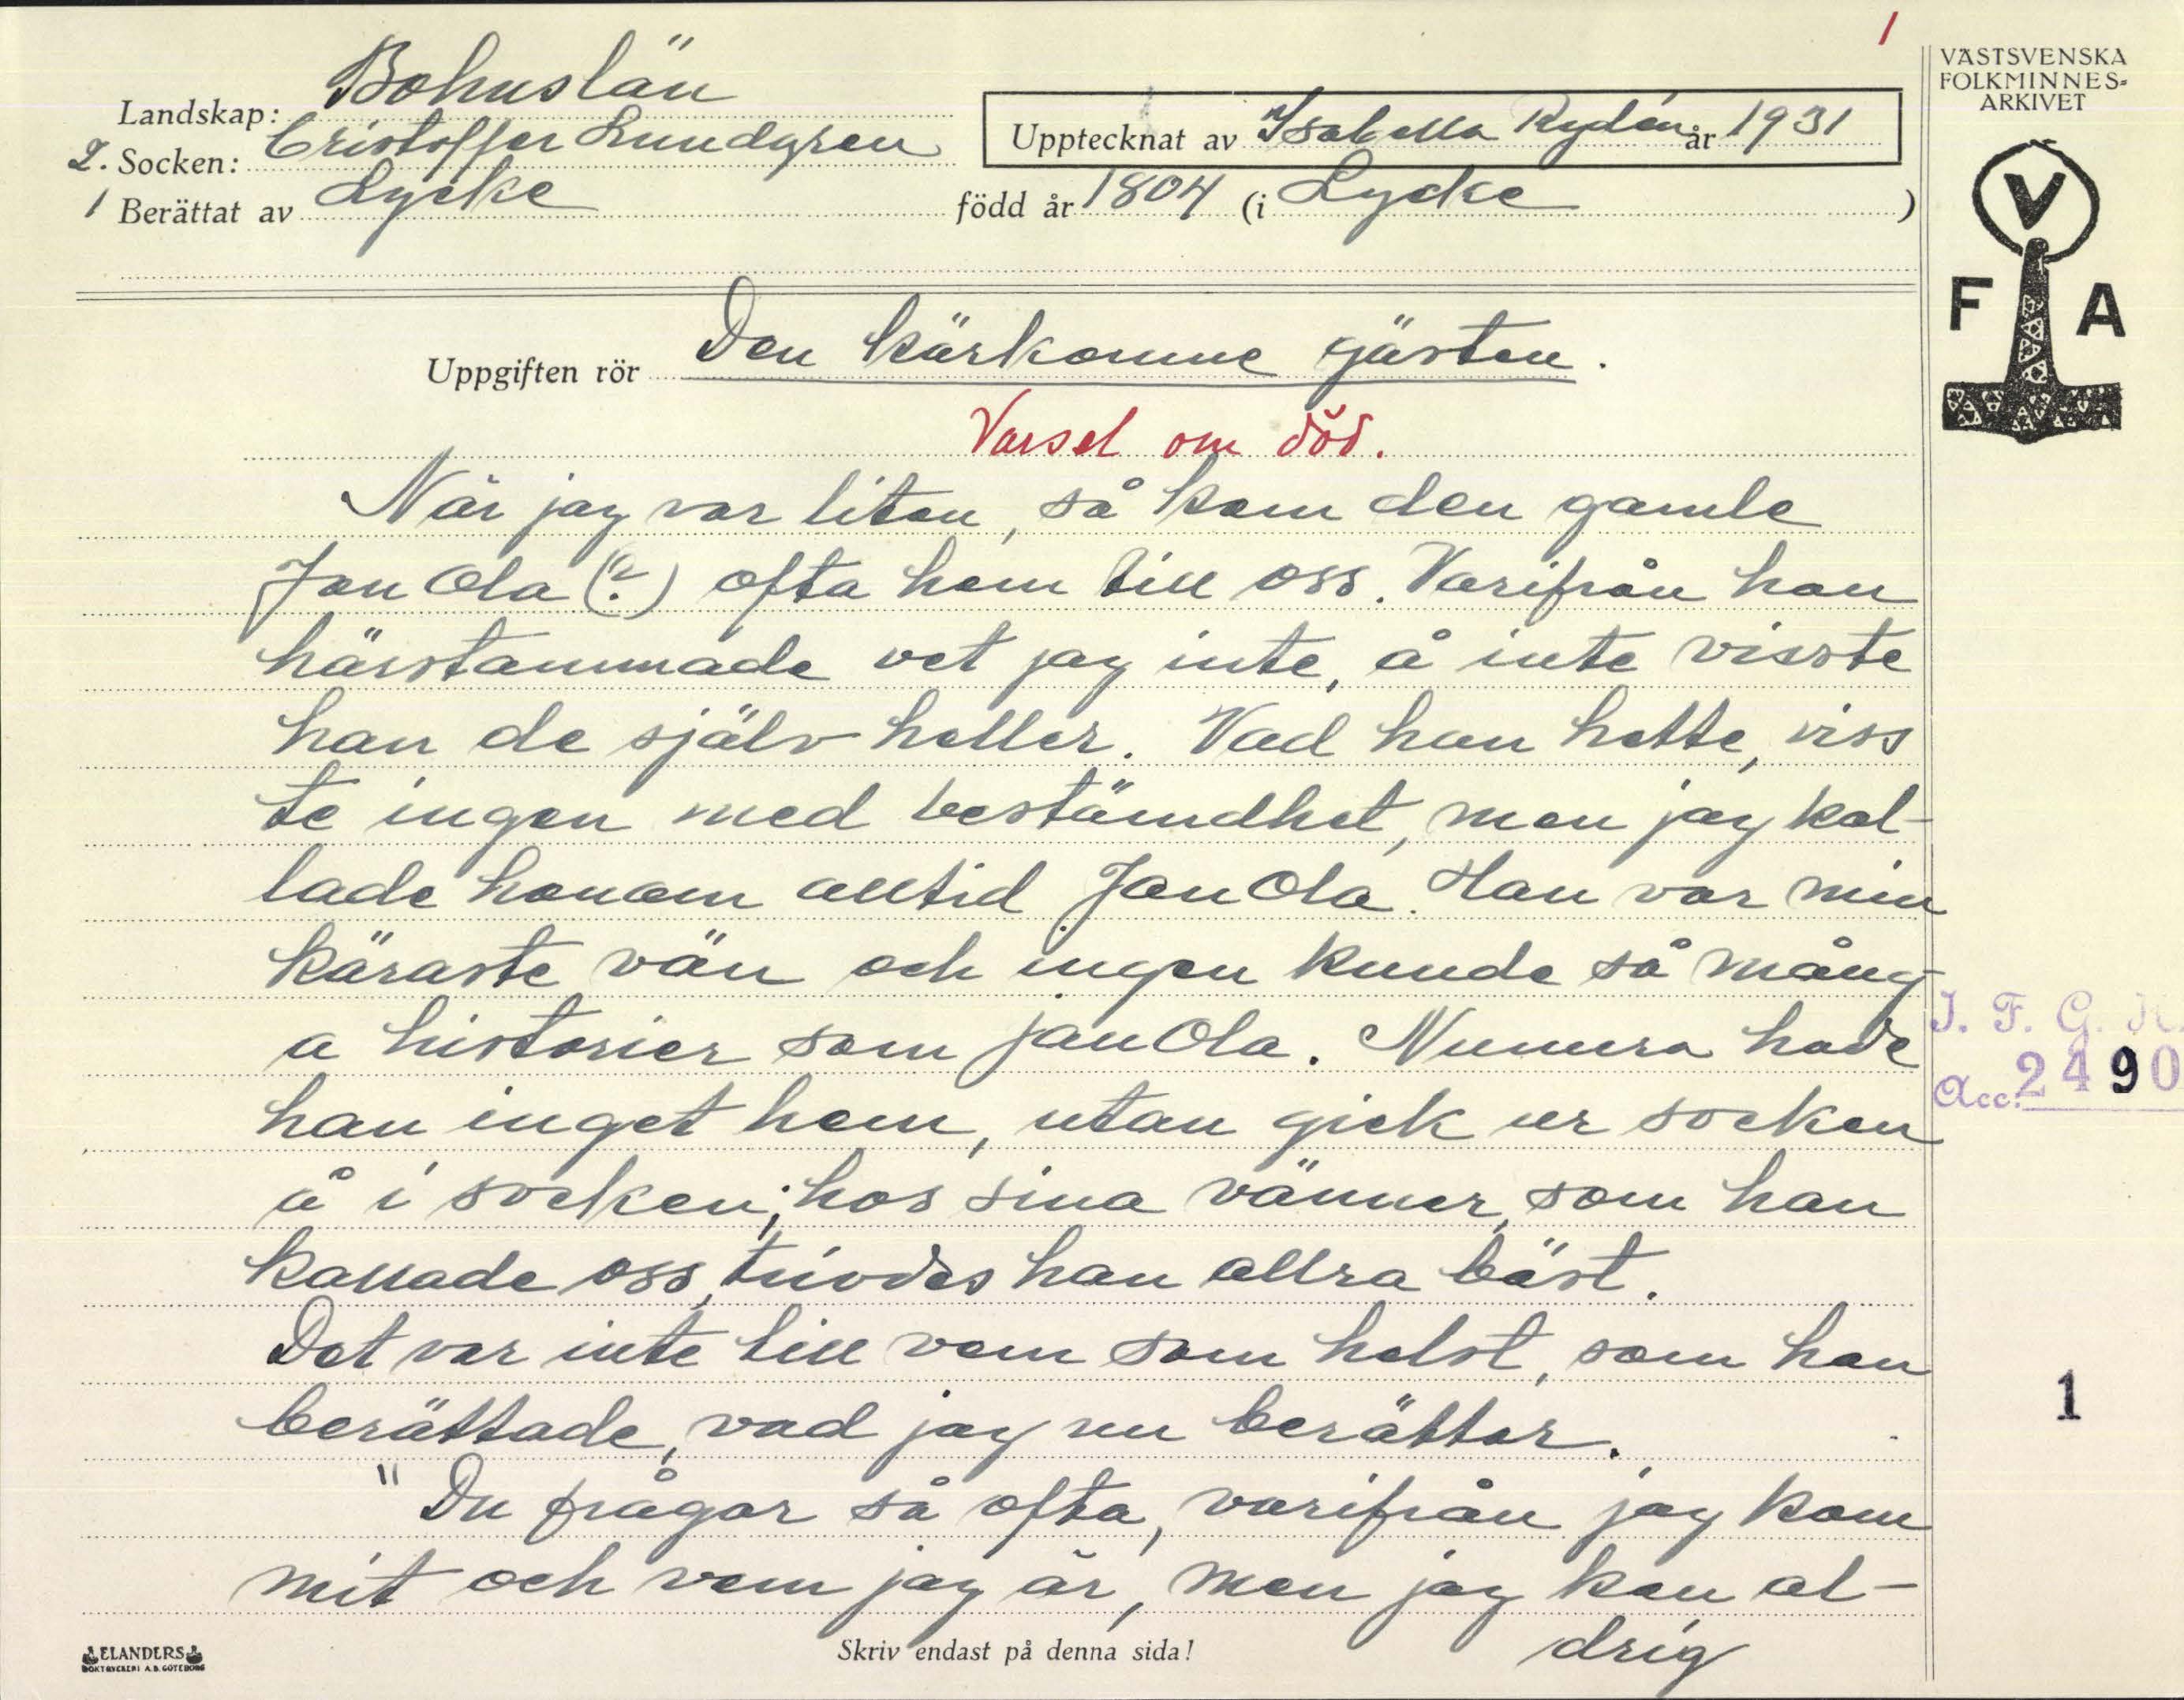 1
VÄSTSVENSKA
FOLKMINNES-
ARKIVET
Landskap: Bohuslän
2. Socken: Cristoffer Lundgren
Upptecknat av Isabella Rydén år 1931
1 Berättat av Lycke född år 1804 (i Lycke )
V
F A
Uppgiften rör Den kärkomne gästen.
Varsel om död.
När jag var liten, så kom den gamle
Jan Ola (?) ofta hem till oss. Varifrån han
härstammade vet jag inte, å inte visste
han de själv heller. Vad han hette, viss
te ingen med bestämdhet, men jag kal-
lade honom alltid Jan Ola. Han var min
käraste vän och ingen kunde så mång
a historier som Jan Ola. Numera hade
han inget hem, utan gick ur socken
å i socken; hos sina vänner, som han
kallade oss, trivdes han allra bäst.
Det var inte till vem som helst, som han
berättade, vad jag nu berättar.
" Du frågar så ofta, varifrån jag kom
mit och vem jag är, men jag kan al-
drig
I. F. G. H.
Acc. 2490
1
ELANDERS
BOKTRYCKERI A.B. GÖTEBORG
Skriv endast på denna sida!